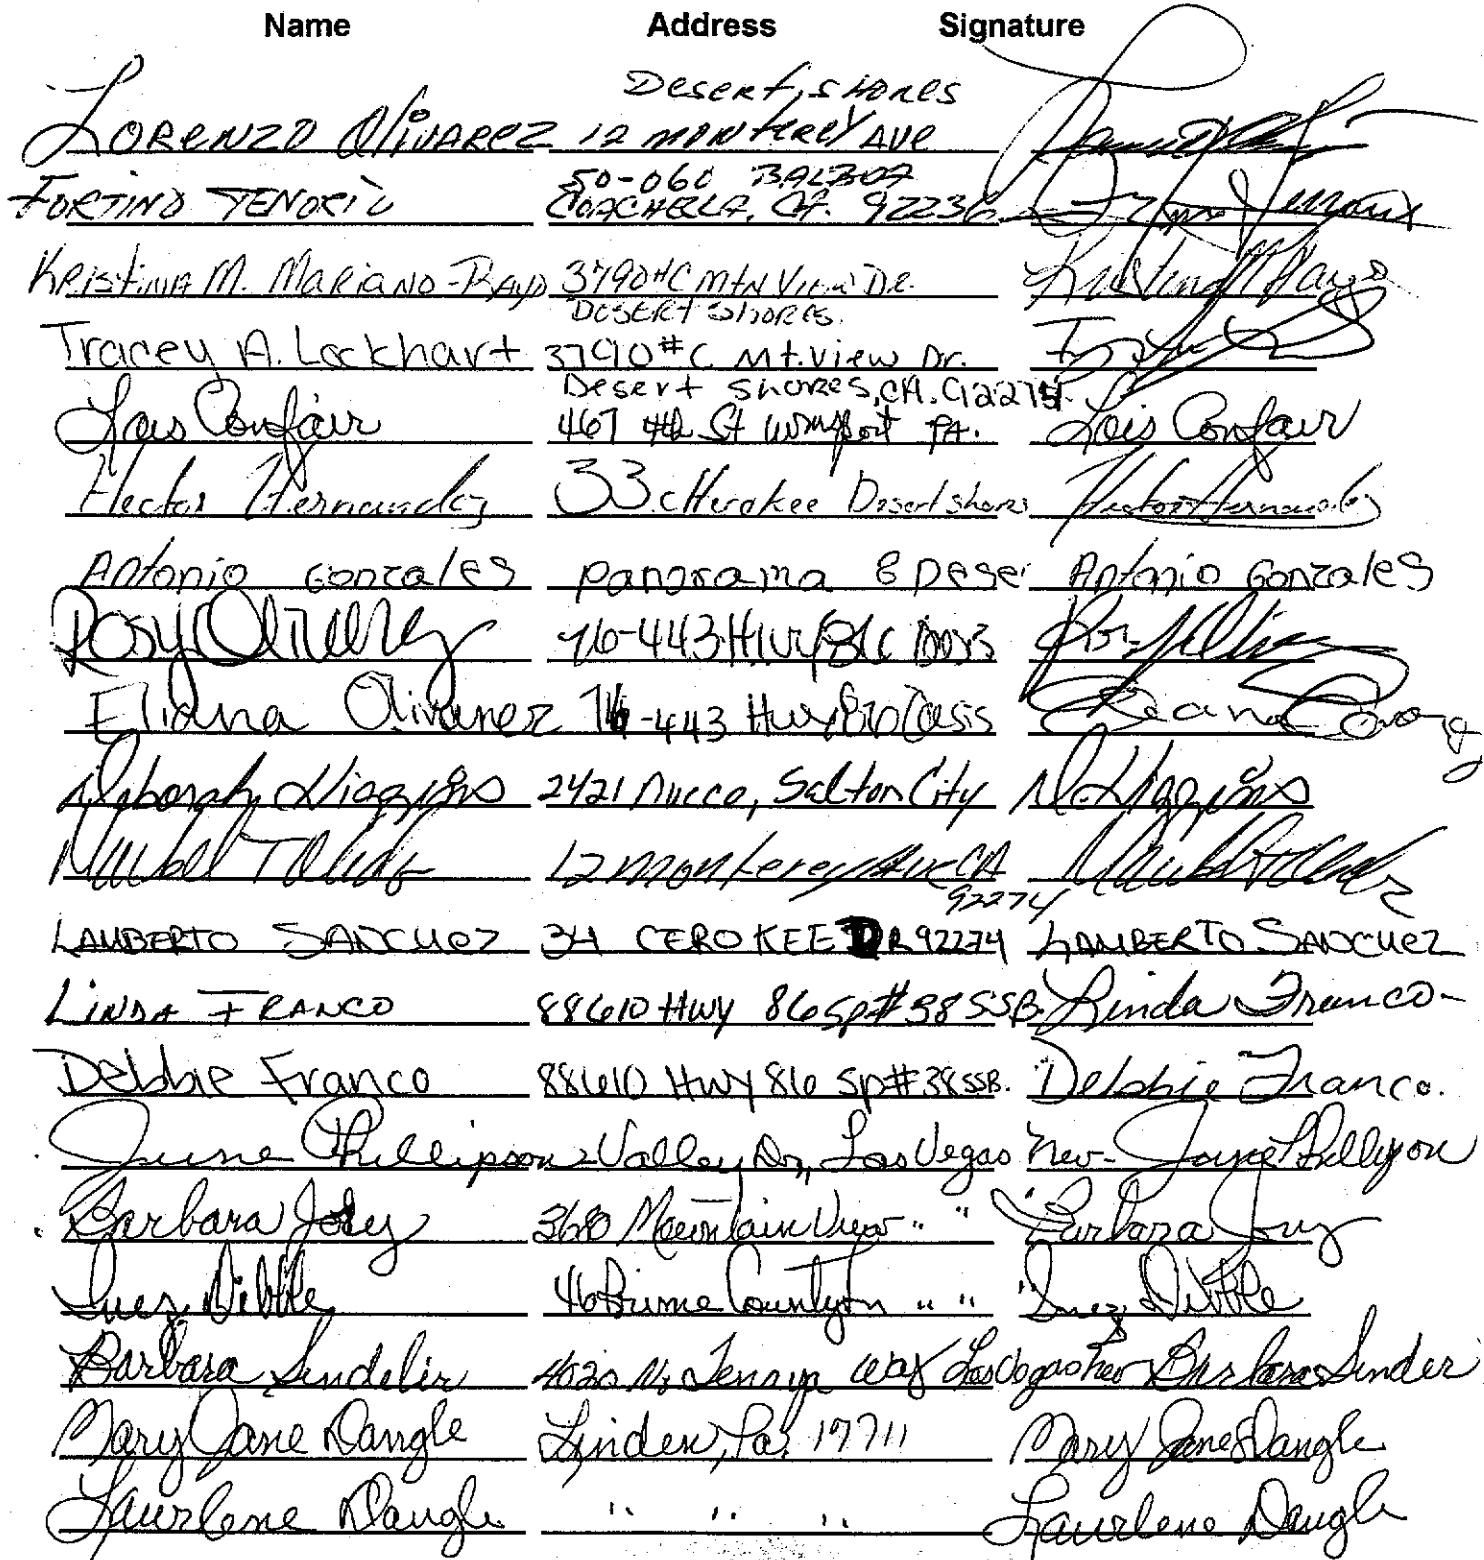 Name Address Signature
Desert Shores
Lorenzo Olivarez 12 Monterey Ave
50-060 BALBOA
FORTINO TENORIO COACHELLA, CA. 92236
Kristina M. Mariano-Rayo 3790 #C Mtn View Dr.
Desert Shores.
Tracey A. Lockhart 3790 #C Mt. View Dr.
Desert Shores, CA. 92274
Lois Confair 467 4th St Wmsport PA. Lois Confair
Hector Hernandez 33 cHerokee Desert shores Hector Hernandez
Antonio Gonzales panorama 8 Dese Antonio Gonzales
Rosy Olivarez 76-443 Hwy 86
Eliana Olivarez 76-443 Hwy 86 Oasis
Deborah Higgins 2421 Salton City D. Higgins
12 Monterey Ave CA
92274
LAMBERTO SANCHEZ 34 CEROKEE DR 92274 LAMBERTO SANCHEZ
LINDA FRANCO 88610 Hwy 86 Sp# 38 SSB. Linda Franco
Debbie Franco 88610 Hwy 86 Sp# 38 SSB. Debbie Franco.
June Phillipson Valley Dr, Las Vegas Nev-
Barbara Joey 3680 Mountain View " " Barbara Joey
Inez Dibble " " Inez Dibble
Barbara Sindelir 4020 Way Las Vegas Nev Barbara Sinder
Mary Jane Dangle Linden, Pa. 17711 Mary Jane Dangle
Laurlene Daugle " " " Laurlene Daugle